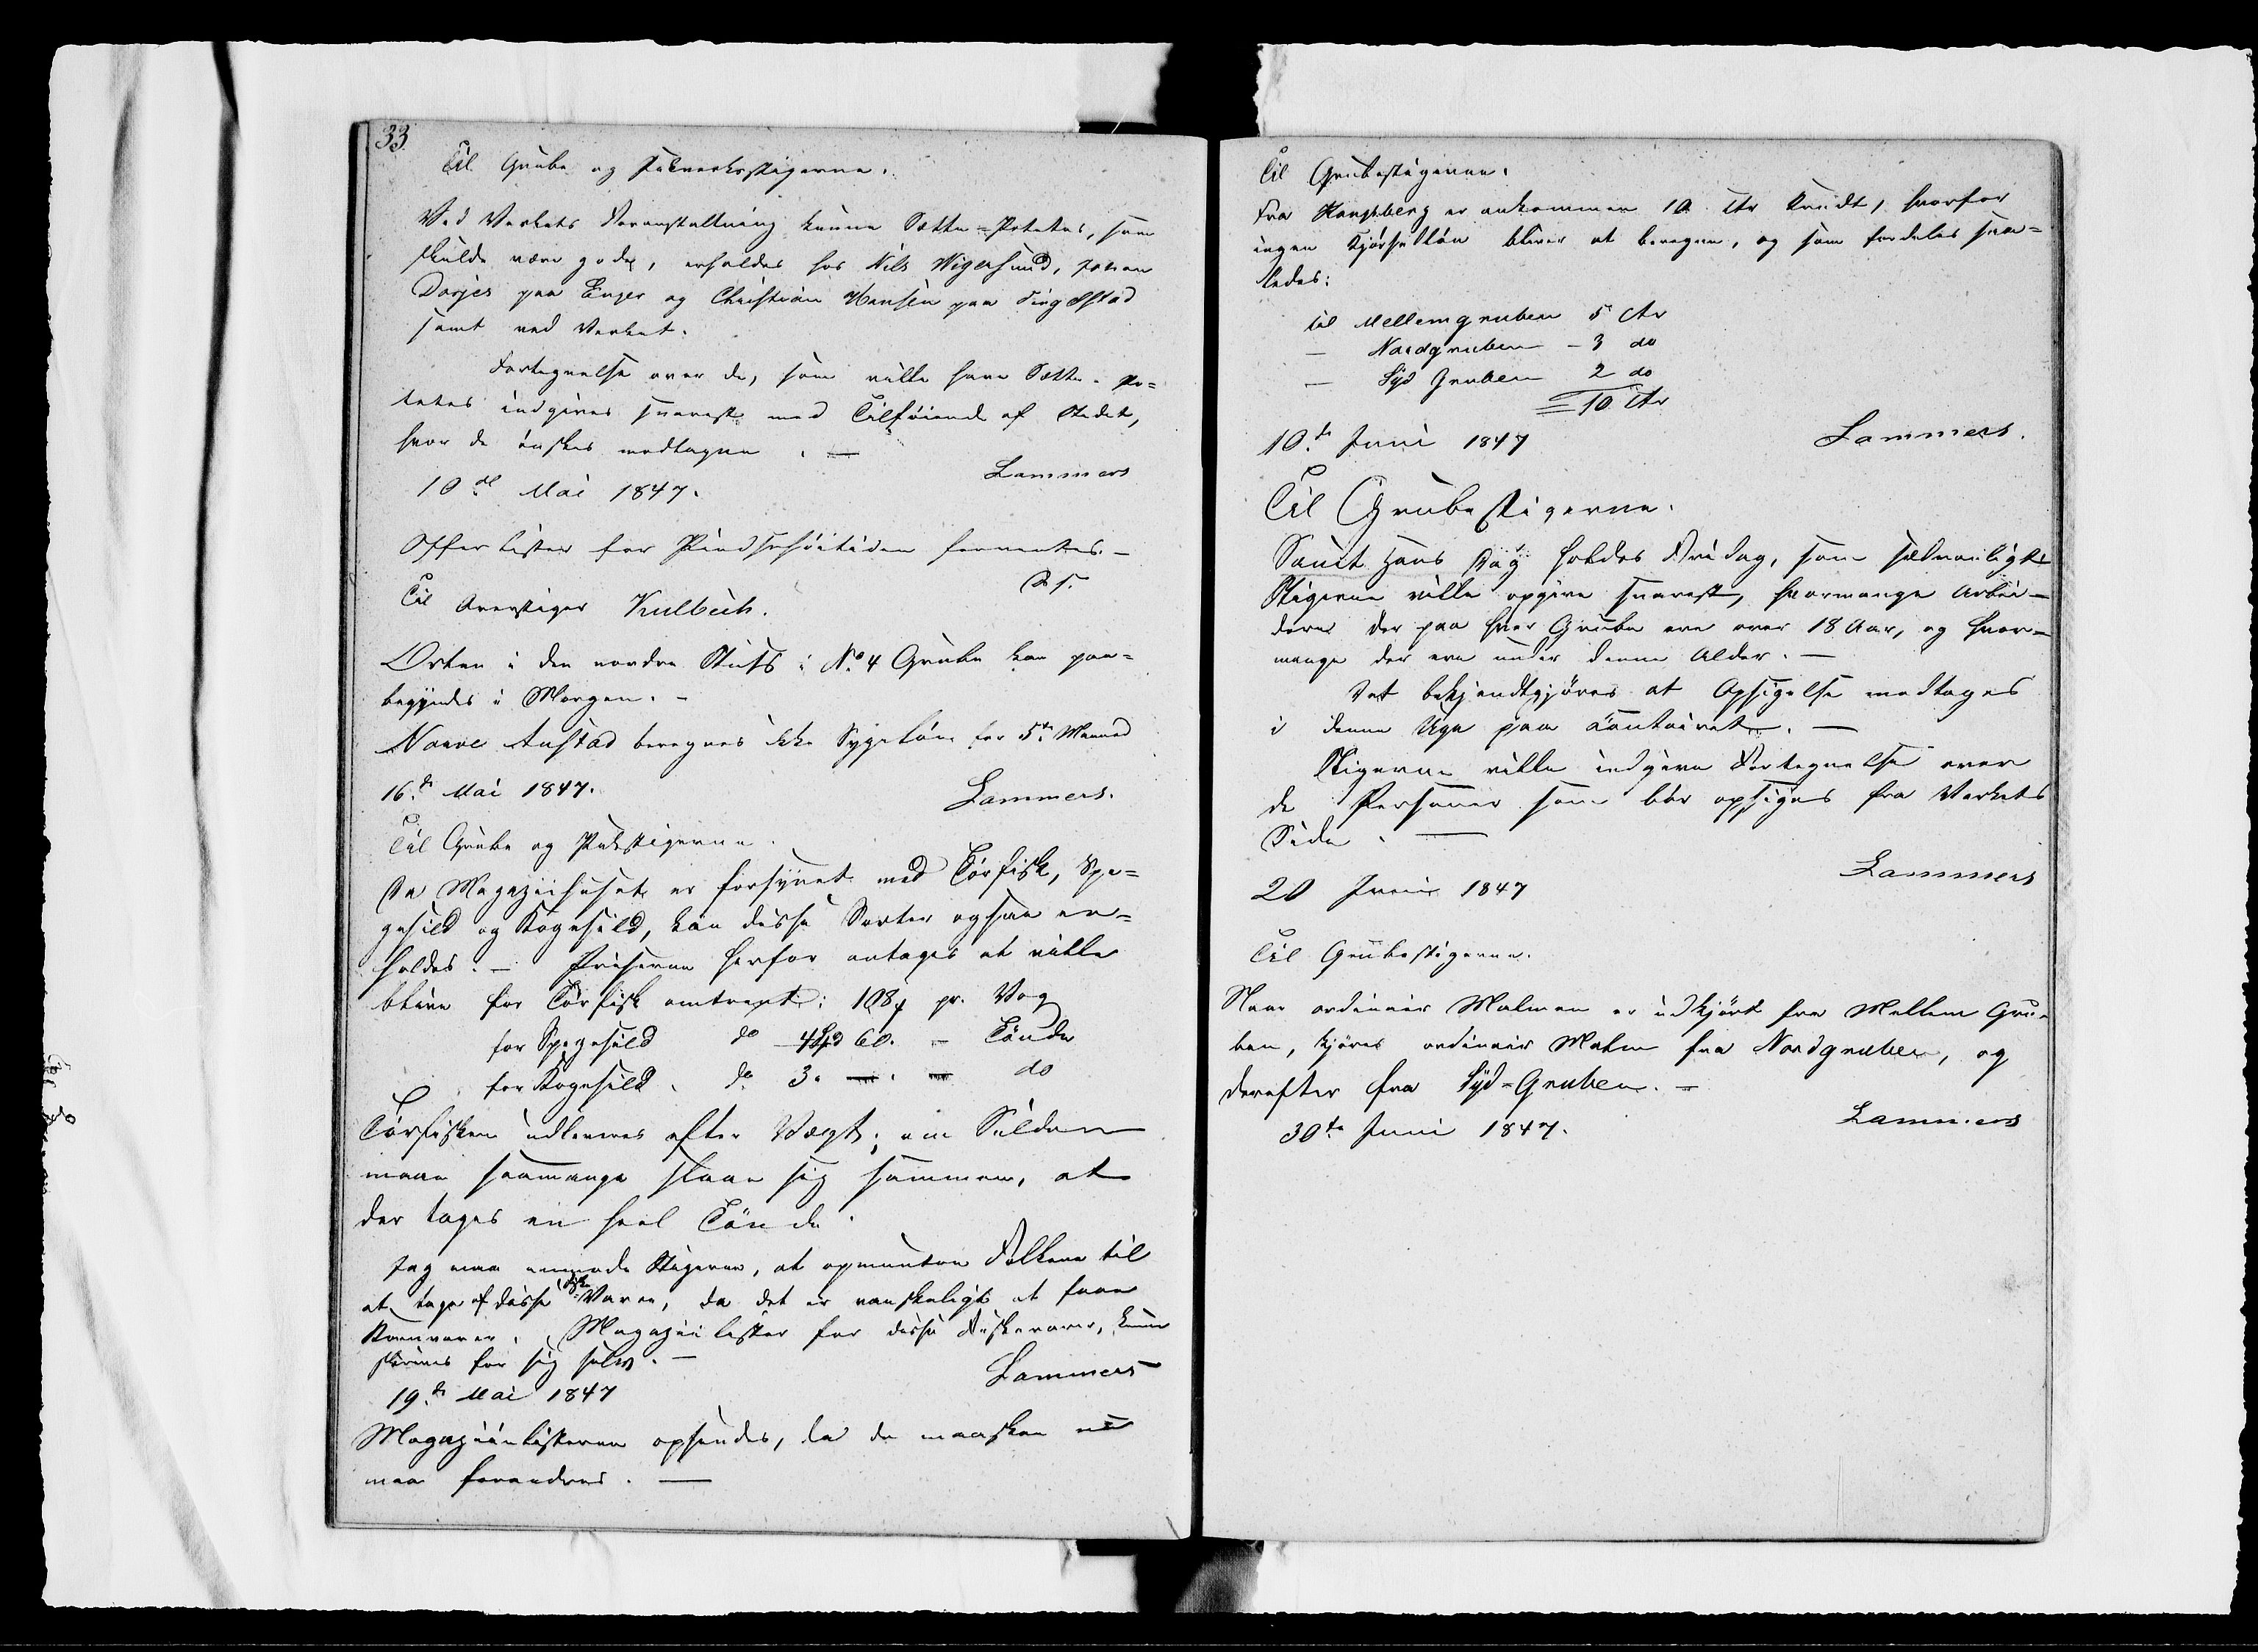 33
Til Grube og Pukverksstigerne.
Ved Verkets Foranstaltning kunne Sette-Potetes, som
skulde være gode, erholdes hos Nils Wigersund, Johan
Dorjer paa Enger og Christian Hansen paa Tingelstad
samt ved Verket.
Fortegnelse over de, som ville have Sette-Po=
tetes indgives snarest med Tilføiende af Stedet,
hvor de ønskes modtagne. —
10de Mai 1847.
Lammers
Offerlister for Pindsehøitiden forventes. —
D. S.
Til Overstiger Kulbech.
Orten i den nordre Stuff i No 4 Grube kan paa=
begyndes i Morgen. —
Narve Austad beregnes ikke Sygeløn for 5te Maaned
16de Mai 1847.
Lammers.
Til Grube og Pukstigerne.
Da Magaziinhuset er forsynet med Tørfisk, Spe=
gesild og Kogesild, kan disse Sorter ogsaa er=
holdes. — Priserne herfor antages at ville
blive for Tørfisk omtrent: 108 ß pr. Vog
for Spegesild do 4 Spd 60. — Tønde
for Kogesild. do 3. — . — do
Tørfisken udleveres efter Vægt; om Silden
maae saamange slaae sig sammen, at
der tages en heel Tønde.
Jeg maa anmode Stigerne, at opmuntre Folkene til
at tage af disse Fisk-Varer, da det er vanskeligt at faae
Kornvarer. Magaziinlister for disse Fiskevarer, kunne
skrives for sig selv. —
19de Mai 1847
Lammers
Magaziinlisterne opsendes, da de maaskee nu
maa forandres. —
Til Grubestigerne.
Fra Kongsberg er ankommen 10 Ctr Krudt, hvorfor
ingen Kjørselløn bliver at beregne, og som fordeles saa=
ledes:
til Mellemgruben 5 Ctr
— Nordgruben — 3 do
— Syd Gruben 2 do
= 10 Ctr
10de Juni 1847
Lammers.
Til Grubestigerne.
Sanct Hans Dag holdes Fridag, som sædvanligt
Stigerne ville opgive snarest, hvormange Arbei-
dere der paa hver Grube ere over 18 Aar, og hvor=
mange der ere under denne Alder. —
Det bekjendtgjøres at Opsigelse modtages
i denne Uge paa Contoiret. —
Stigerne ville indgive Fortegnelse over
de Personer som bør opsiges fra Verkets
Side. —
20 Juni 1847
Lammers
Til Grubestigerne.
Naar ordinair Malmen er udkjørt fra Mellem Gru-
ben, kjøres ordinair Malm fra Nordgruben, og
derefter fra Syd-Gruben. —
30te Juni 1847.
Lammers